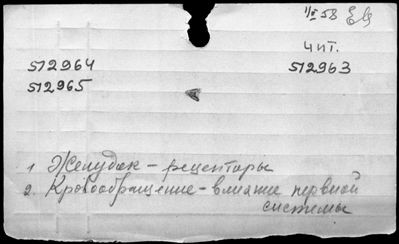 1/II 58
чит.
512964 512963
512965
1 Желудок - рецепторы
2. Кровообращение - влияние нервной
системы